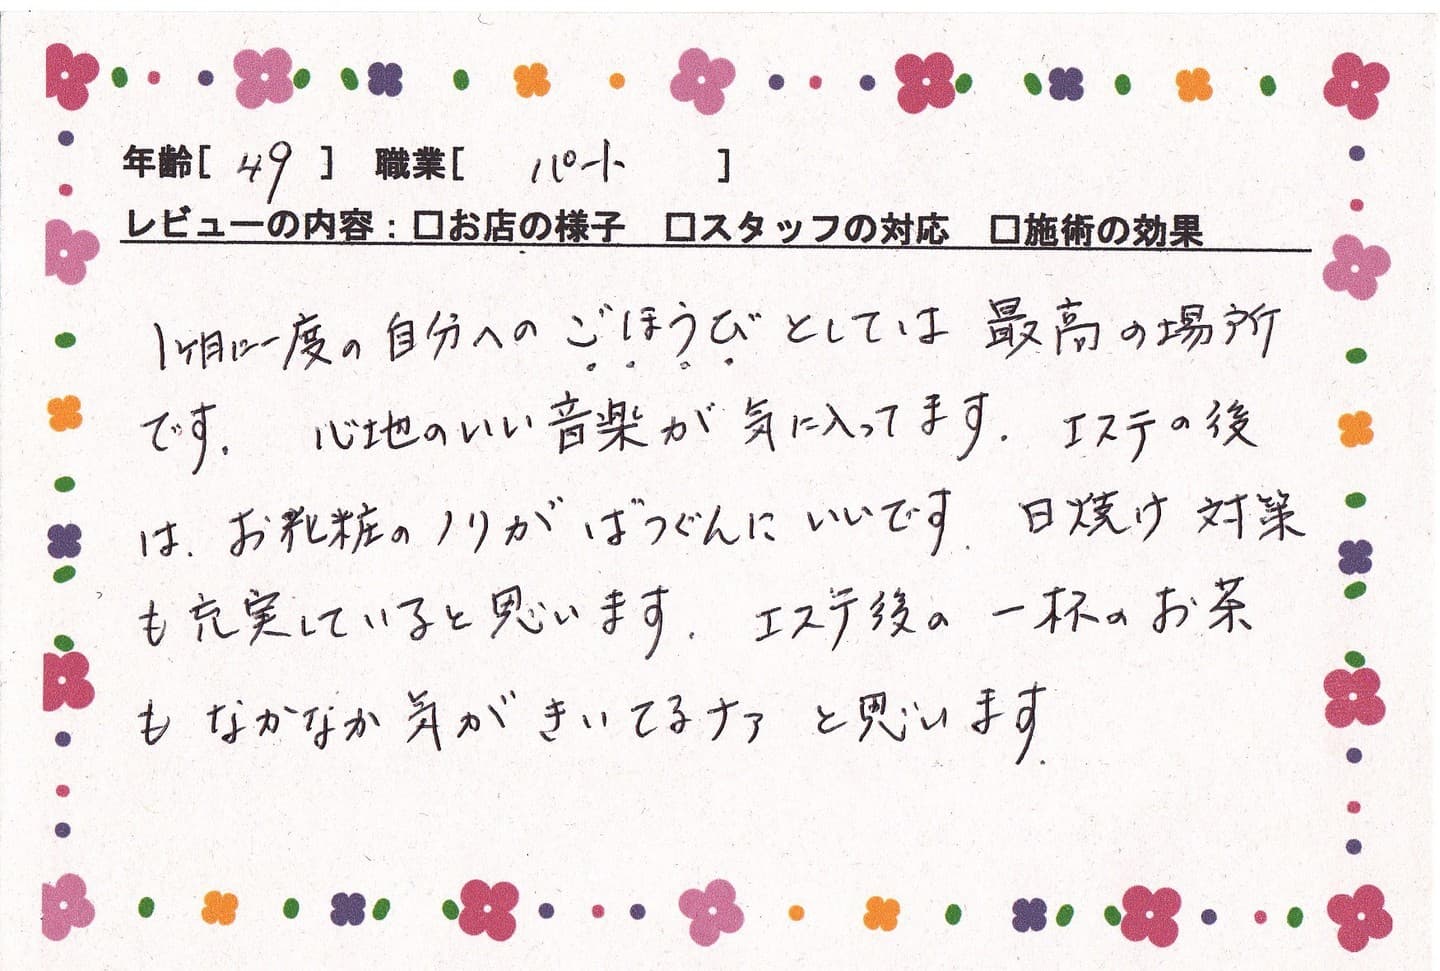 年齢[ 49 ] 職業[ パート ]
レビューの内容：□お店の様子 □スタッフの対応 □施術の効果
1ヶ月に一度の自分へのごほうびとしては最高の場所
です. 心地のいい音楽が気に入ってます. エステの後
は、お化粧のノリがばつぐんにいいです. 日焼け対策
も充実していると思います. エステ後の一杯のお茶
もなかなか気がきいてるナァと思います.